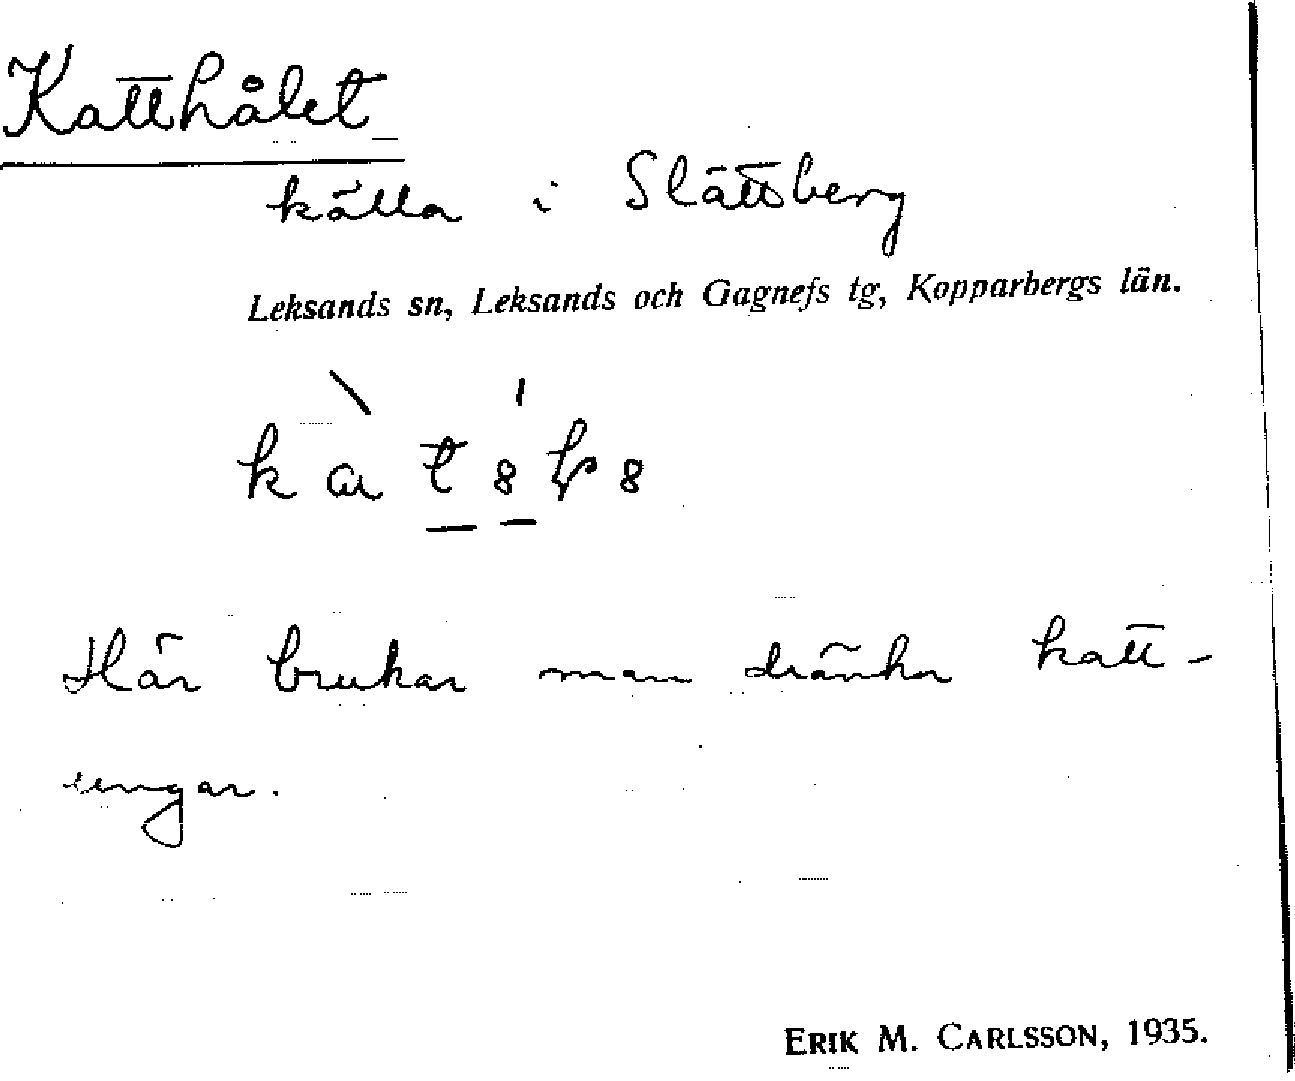 Katthålet
källa i Slättberg
Leksands sn, Leksands och Gagnefs tg, Kopparbergs län.
Här brukar man dränka katt-
ungar.
ERIK M. CARLSSON, 1935.